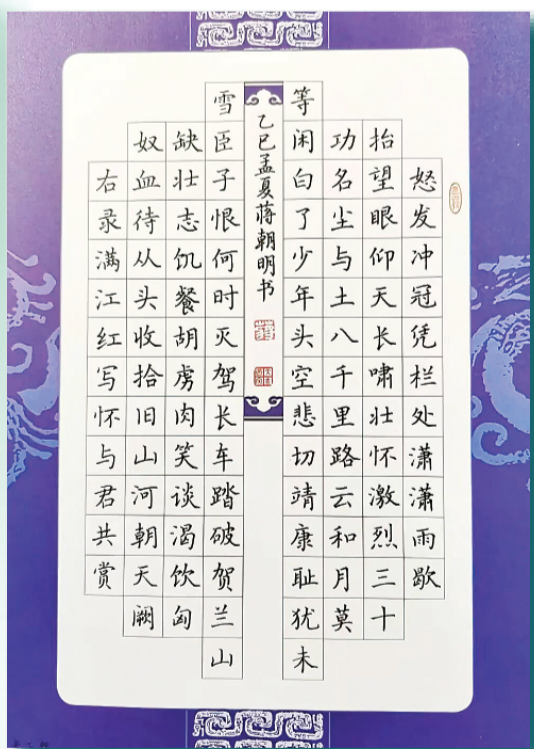 怒发冲冠凭栏处潇潇雨歇
抬望眼仰天长啸壮怀激烈三十
功名尘与土八千里路云和月莫
等闲白了少年头空悲切靖康耻犹未
雪臣子恨何时灭驾长车踏破贺兰山
缺壮志饥餐胡虏肉笑谈渴饮匈
奴血待从头收拾旧山河朝天阙
右录满江红写怀与君共赏
乙巳孟夏蒋朝明书